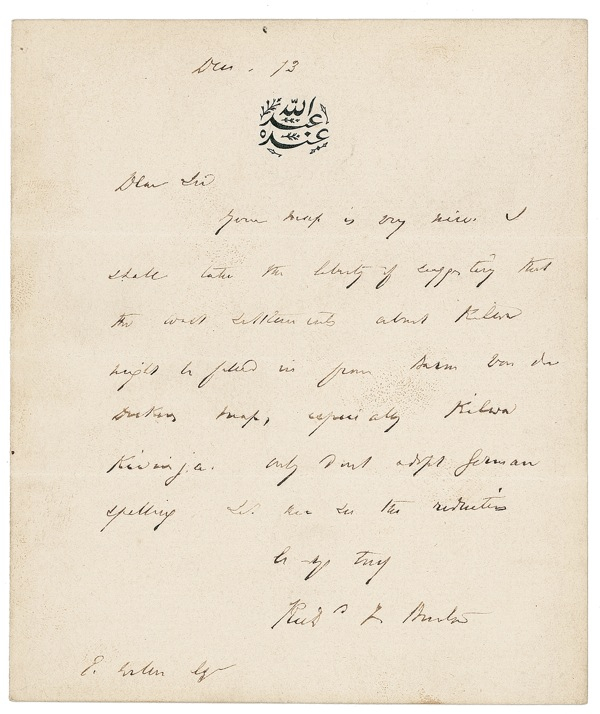 Dec. 13
عبد الله
Dear Sir
Your map is very nice. I
shall take the liberty of suggesting that
the coast settlements about Kilwa
might be filled in from Baron Von der
Deckens map, especially Kilwa
Kivinja. Only don't adopt German
spelling Let me see the reduction
truly
Rich^d F Burton
E. Esq^r